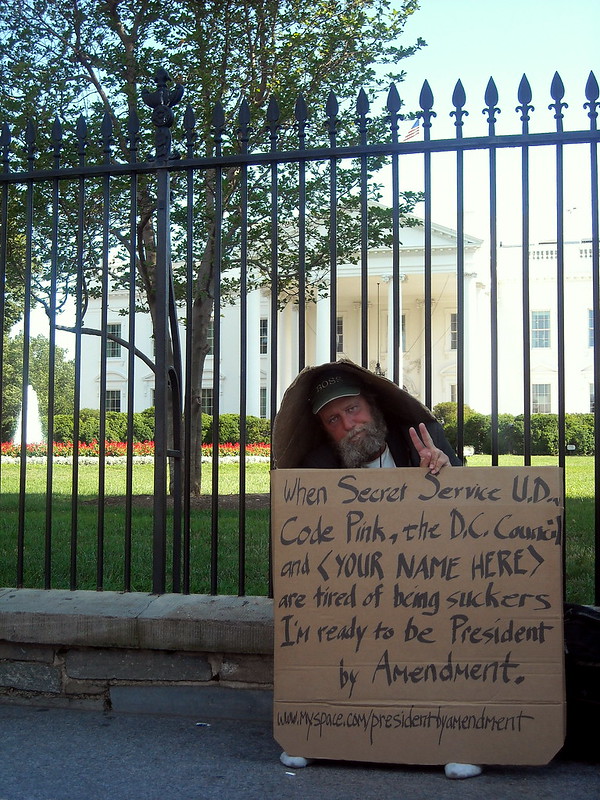 When Secret Service U.D.,
Code Pink, the D.C. Council
and <YOUR NAME HERE>
are tired of being suckers
I'm ready to be President
by Amendment.
www.myspace.com/presidentbyamendment